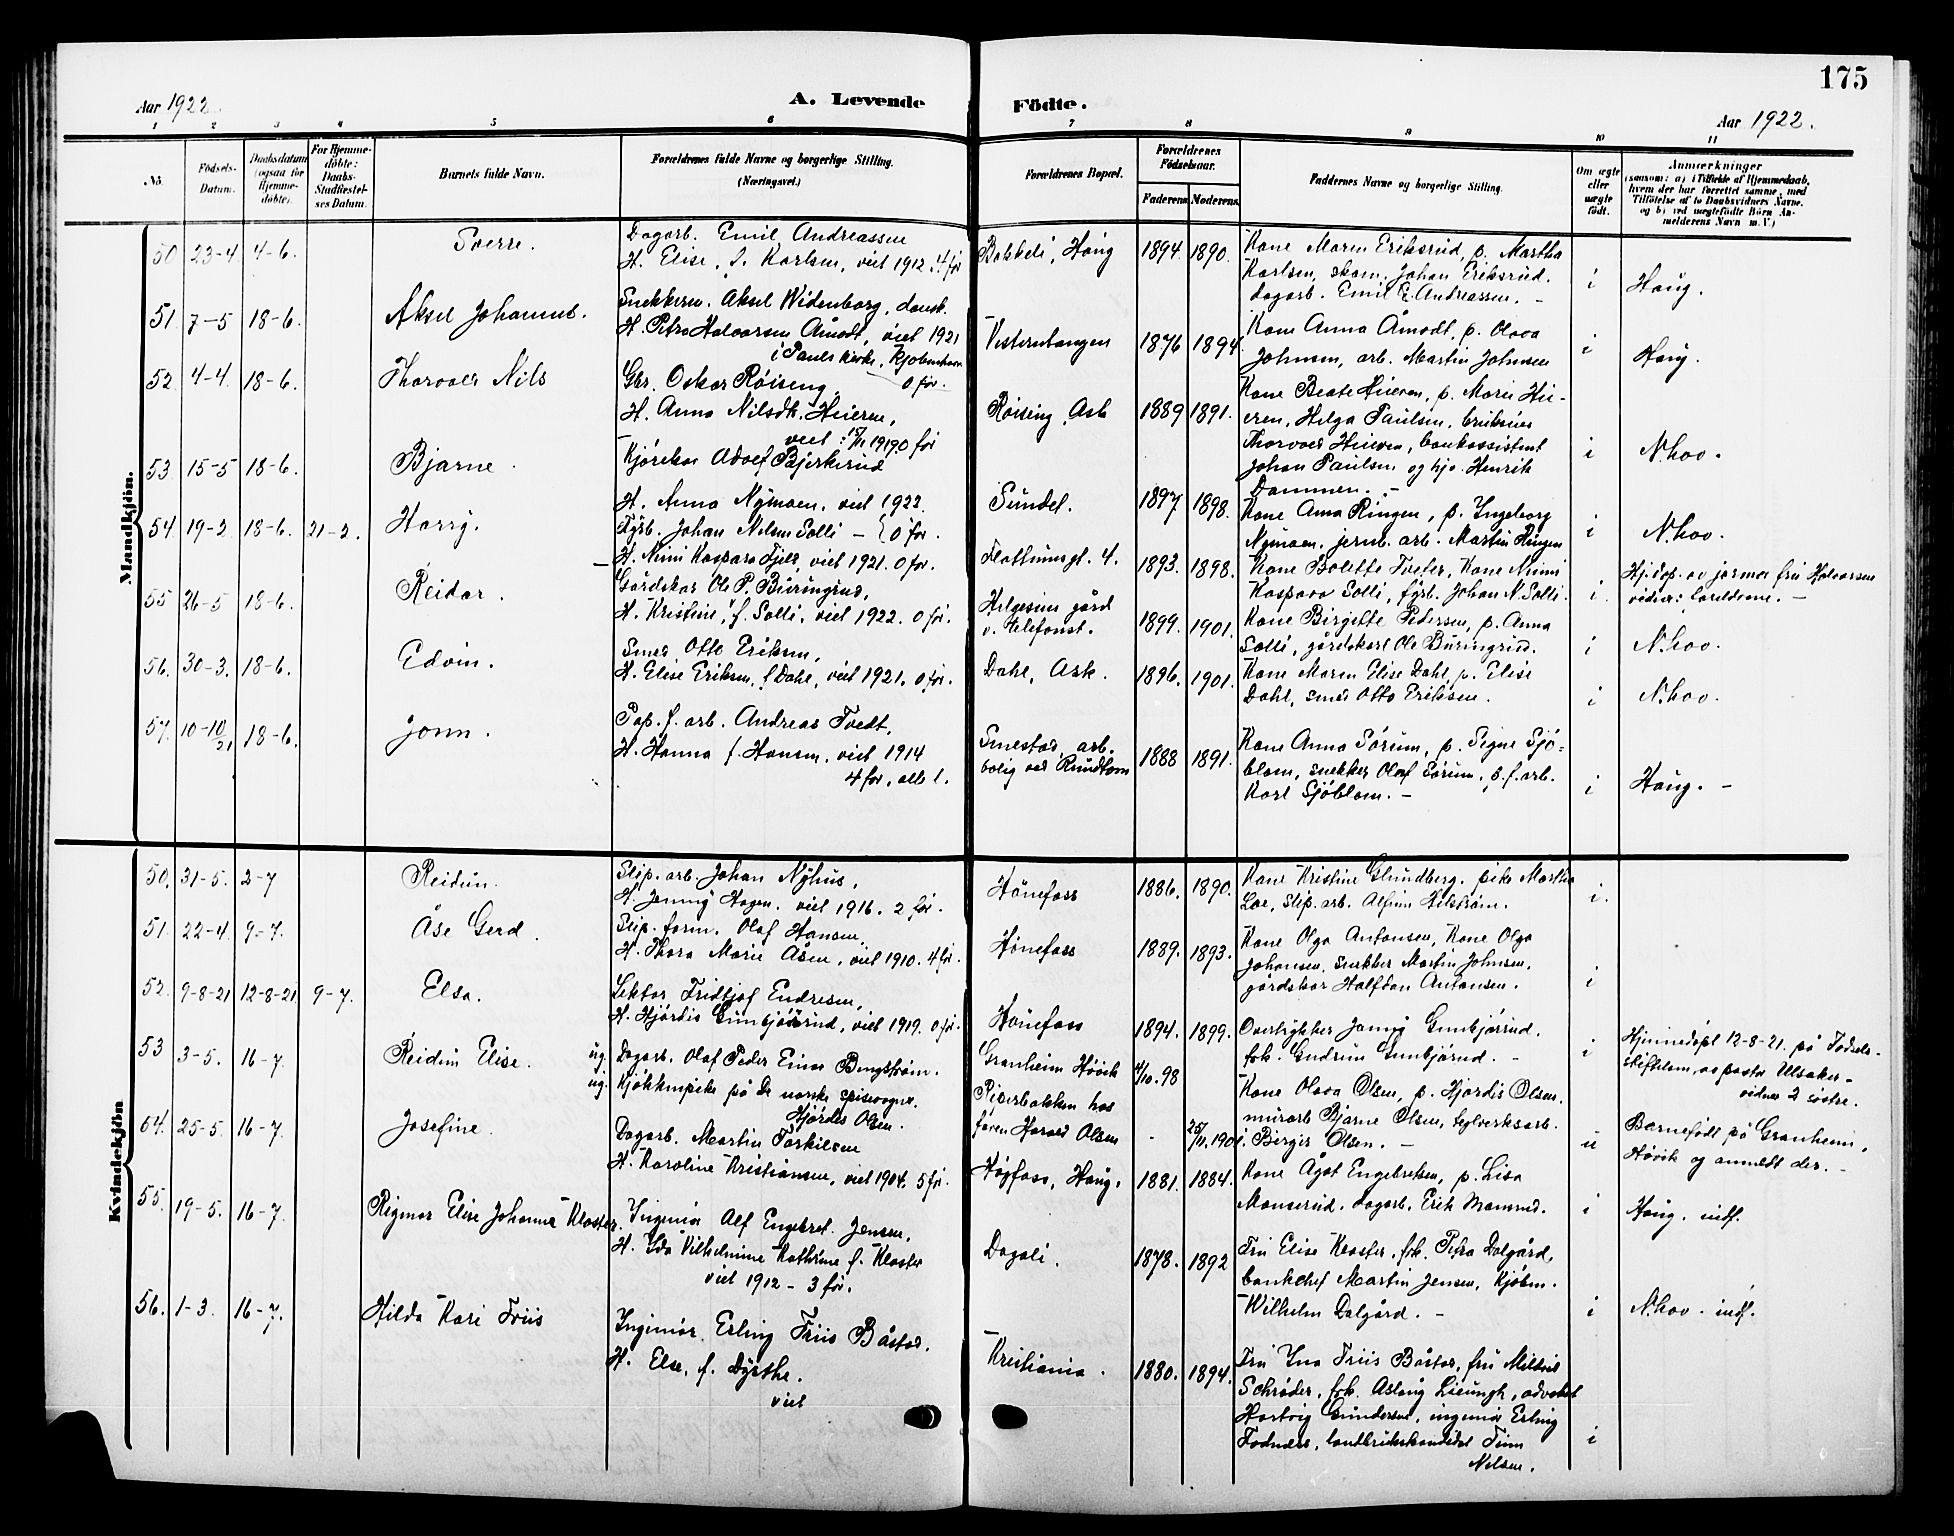 175
Aar 1922.
A. Levende Födte.
Aar 1922.
1 2 3 4 5 6 7 8 9 10 11
No.
Födsels-Datum.
Daabsdatum (ogsaa for Hjemme-döbte).
For Hjemme-döbte: Daabs-Stadfæstel-ses Datum.
Barnets fulde Navn.
Forældrenes fulde Navne og borgerlige Stilling.
(Næringsvei.)
Forældrenes Bopæl.
Forældrenes Födselsaar.
Faderens Moderens
Faddernes Navne og borgerlige Stilling.
Om ægte eller uægte födt.
Anmærkninger
(saasom: a) i Tilfælde af Hjemmedaab,
hvem der har forrettet samme, med
Tilföielse af to Daabsvidners Navne.
og b) ved uægtefödte Börn An-
melderens Navn m. V.)
Mandkjön.
50 23-4 4-6. Sverre.
Dagarb. Emil Andreassen
H. Elise, f. Karlsen, viet 1912. 4 før
Bolkeli, Haug 1894 1890.
Kone Maren Eriksrud, p. Martha
Karlsen, skom. Johan Eriksrud.
dagarb. Emil E. Andreassen. -
i Haug.
51 7-5 18-6. Aksel Johannes.
Snekkersv. Aksel Widenborg, dansk.
H. Petra Halvorsen Åmodt, viet 1921
i Pauls kirke, Kjøbenhavn
0 før.
Vesterntangen 1876 1894
Kone Anna Åmodt, p. Olava
Johnsen, arb. Martin Johnsen
i Haug.
52 4-4. 18-6. Thorvald Nils
Gbr. Oskar Røiseng,
H. Anna Nilsdh. Heieren,
viet: 15/11 1919. 0 før
Røising, Ask 1889 1891.
Kone Beate Heieren, p. Marie Hei-
eren, Helga Paulsen, brukseier
Thorvald Heieren, bankassistent
Johan Paulsen og hjo. Henrik
Dammen. -
i N.hov.
53 15-5 18-6. Bjarne.
Kjørekar Adolf Bjerkerud
H. Anna Nymoen, viet 1922.
0 før.
Sundet. 1897 1898.
Kone Anna Ringen, p. Ingeborg
Nymoen, jernb. arb. Martin Ringen
i N.hov.
54. 19-2 18-6. 21-2. Harry.
Fyrb. Johan Nilsen Solli -
H. Mimi Kaspara Fjeld, viet 1921. 0 før.
Flattumsgt. 4. 1893. 1898.
Kone Bolette Tveter, Kone Mimi
Kaspara Solli, fyrb. Johan N. Solli.
i.
Hj.døp. av jormor fru Halvorsen
vidner: foreldrene. -
55 26-5 18-6. Reidar.
Gårdskar Ole P. Buringrud,
H. Kristine, f. Solli, viet 1922. 0 før.
Helgesens gård
v. telefonst. 1899. 1901.
Kone Birgitte Pedersen, p. Anna
Solli, gårdskarl Ole Buringrud.
i N.hov.
56. 30-3. 18-6. Edvin.
Smed Otto Eriksen,
H. Elise Eriksen, f Dahl, viet 1921. 0 før.
Dahl, Ask. 1896. 1901.
Kone Maren Elise Dahl, p. Elise
Dahl, smed Otto Eriksen.
i N.hov.
57. 10-10/21 18-6. Jonn.
Pap. f. arb. Andreas Tvedt,
H. Hanna f. Hansen, viet 1914
4 før, alle l.
Smestad, arb.
bolig ved Rundtom 1888 1891.
Kone Anna Sørum, p. Signe Sjö-
blom, snekker Olaf Sørum, p. f. arb.
Karl Sjöblom. -
i Haug. -
Kvindekjön
50. 31-5. 2-7 Reidun.
Slip. arb. Johan Nyhus.
H. Jenny Hagen, viet 1916. 2 før.
Hönefoss 1886. 1890.
Kone Kristine Glundberg. pike Martha
Loe, slip. arb. Alfinn
i.
51. 22-4. 9-7. Åse Gerd.
Slip. form. Olaf Hansen,
H. Thora Marie Åsen, viet 1910. 4 før.
Hönefoss 1889. 1893.
Kone Olga Antonsen, Kone Olga
Johansen, snekker Martin Johnsen,
gårdskar Halfdan Antonsen.
i
52. 9-8-21 12-8-21 9-7. Elsa.
Lektor Fridtjof Endresen,
H. Hjördis Gunbjörrud, viet 1919. 0 før.
Hönefoss 1894. 1899.
Overligther Jenny Gunbjörrud.
frk. Gudrun Gunbjörrud. -
i
Hjemmedøpt 12-8-21. på Fødsels-
stiftelsen, av pastor Ulsaker -
vidner 2 søstre.
53 3-5. 16-7. Reidun Elise.
ug. Dagarb. Olaf Peder Einar Bengtström.
ug. Kjøkkenpike på De norske spisevogner.
Hjördis Olsen.
Granheim Hövik 4/10. 98
Piperbakken hos
faren Harald Olsen - 25/11. 1901
Kone Olava Olsen, p. Hjördis Olsen.
murarb Bjarne Olsen, teglverksarb.
Birger Olsen. -
u
Barnefødt på Granheim,
Høvik og anmeldt der. -
54. 25-5. 16-7. Josefine.
Dagarb. Martin Torkilsen
H. Karoline Kristiansen, viet 1904. 5 før.
Høgfoss, Haug. 1881. 1884.
Kone Ågot Engebretsen, p. Lisa
Monserud, dagarb. Erik Monserud.
i Haug. indf.
55. 19-5. 16-7. Rigmor Elise Johanne Kloster.
Ingeniør Alf Engebret Jensen,
H. Ida Vilhelmine Kathrine f. Kloster
viet 1912 - 3 før.
Dagali. 1878. 1892
Fru Elise Kloster, frk. Petra Dalgård,
bankchef Martin Jensen, Kjøbm.
Wilhelm Dalgård. -
i N.hov. indf.
56. 1-3. 16-7. Hilda Kari Friis
Ingeniør. Erling Friis Båstad.
H. Else, f. Dyrthe.
viet
Kristiania. 1880. 1894.
Fru Ina Friis Båstad, fru Mildrid
Schrøder, frk. Aslaug Lieungh, advokat
Hartvig Gundersen, ingeniør Erling
Fodnæss, landbrukskandidat Finn
Nilsen.
i